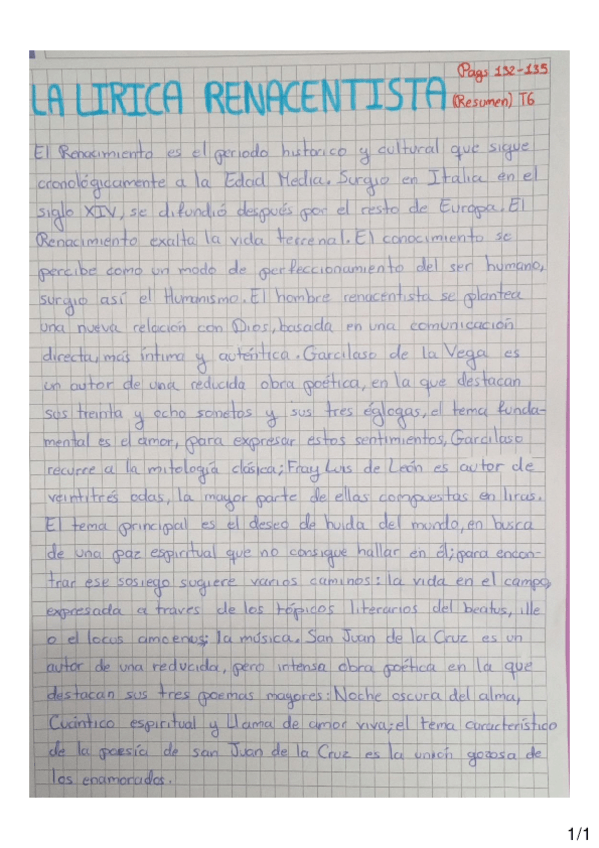 Pags 132-135
LA LIRICA RENACENTISTA (Resumen) T6
El Renacimiento es el periodo historico y cultural que sigue
cronológicamente a la Edad Media. Surgio en Italia en el
siglo XIV, se difundió después por el resto de Europa. El
Renacimiento exalta la vida terrenal. El conocimiento se
percibe como un modo de perfeccionamiento del ser humano,
surgio así el Humanismo. El hombre renacentista se plantea
una nueva relación con Dios, basada en una comunicación
directa, más íntima y auténtica. Garcilaso de la Vega es
un autor de una reducida obra poética, en la que destacan
sus treinta y ocho sonetos y sus tres églogas, el tema funda-
mental es el amor, para expresar estos sentimientos, Garcilaso
recurre a la mitología clásica; Fray Luis de León es autor de
veintitrés odas, la mayor parte de ellas compuestas en liras.
El tema principal es el deseo de huida del mundo, en busca
de una paz espiritual que no consigue hallar en él; para encon-
trar ese sosiego sugiere varios caminos: la vida en el campo,
expresada a traves de los tópicos literarios del beatus, ille
o el locus amoenus; la música. San Juan de la Cruz es un
autor de una reducida, pero intensa obra poética en la que
destacan sus tres poemas mayores: Noche oscura del alma,
Cuántico espiritual y Llama de amor viva; el tema característico
de la poesía de san Juan de la Cruz es la unión gozosa de
los enamorados.
1/1